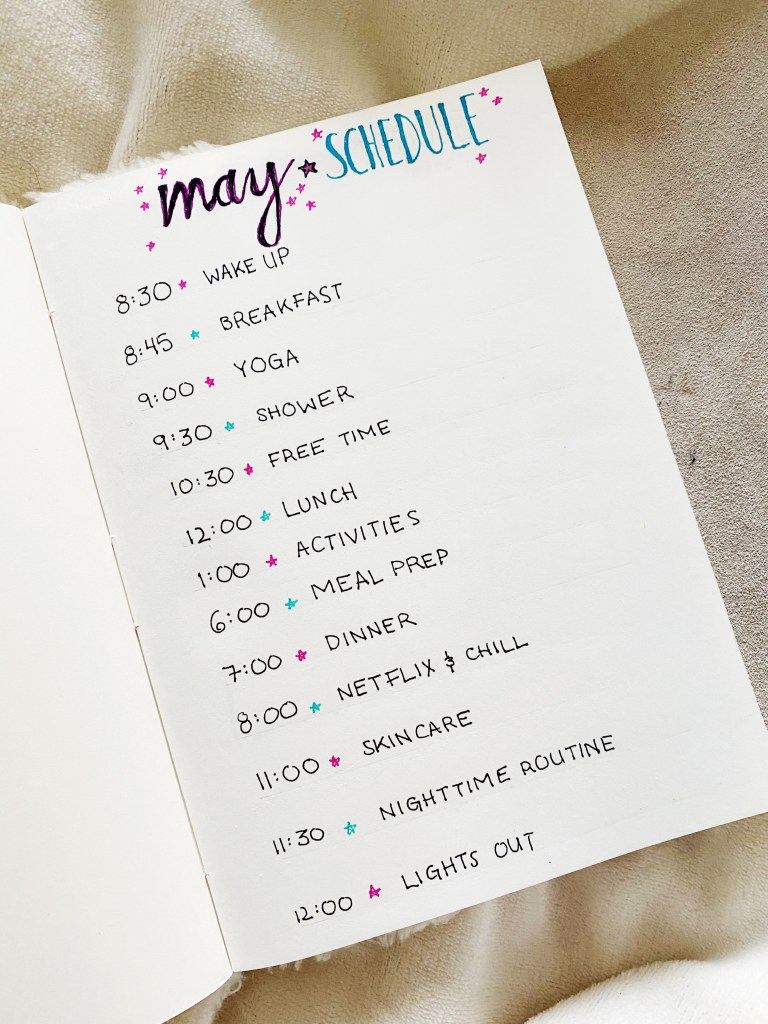 may ☆ SCHEDULE
8:30 ☆ WAKE UP
8:45 ☆ BREAKFAST
9:00 ☆ YOGA
9:30 ☆ SHOWER
10:30 ☆ FREE TIME
12:00 ☆ LUNCH
1:00 ☆ ACTIVITIES
6:00 ☆ MEAL PREP
7:00 ☆ DINNER
8:00 ☆ NETFLIX & CHILL
11:00 ☆ SKINCARE
11:30 ☆ NIGHTTIME ROUTINE
12:00 ☆ LIGHTS OUT